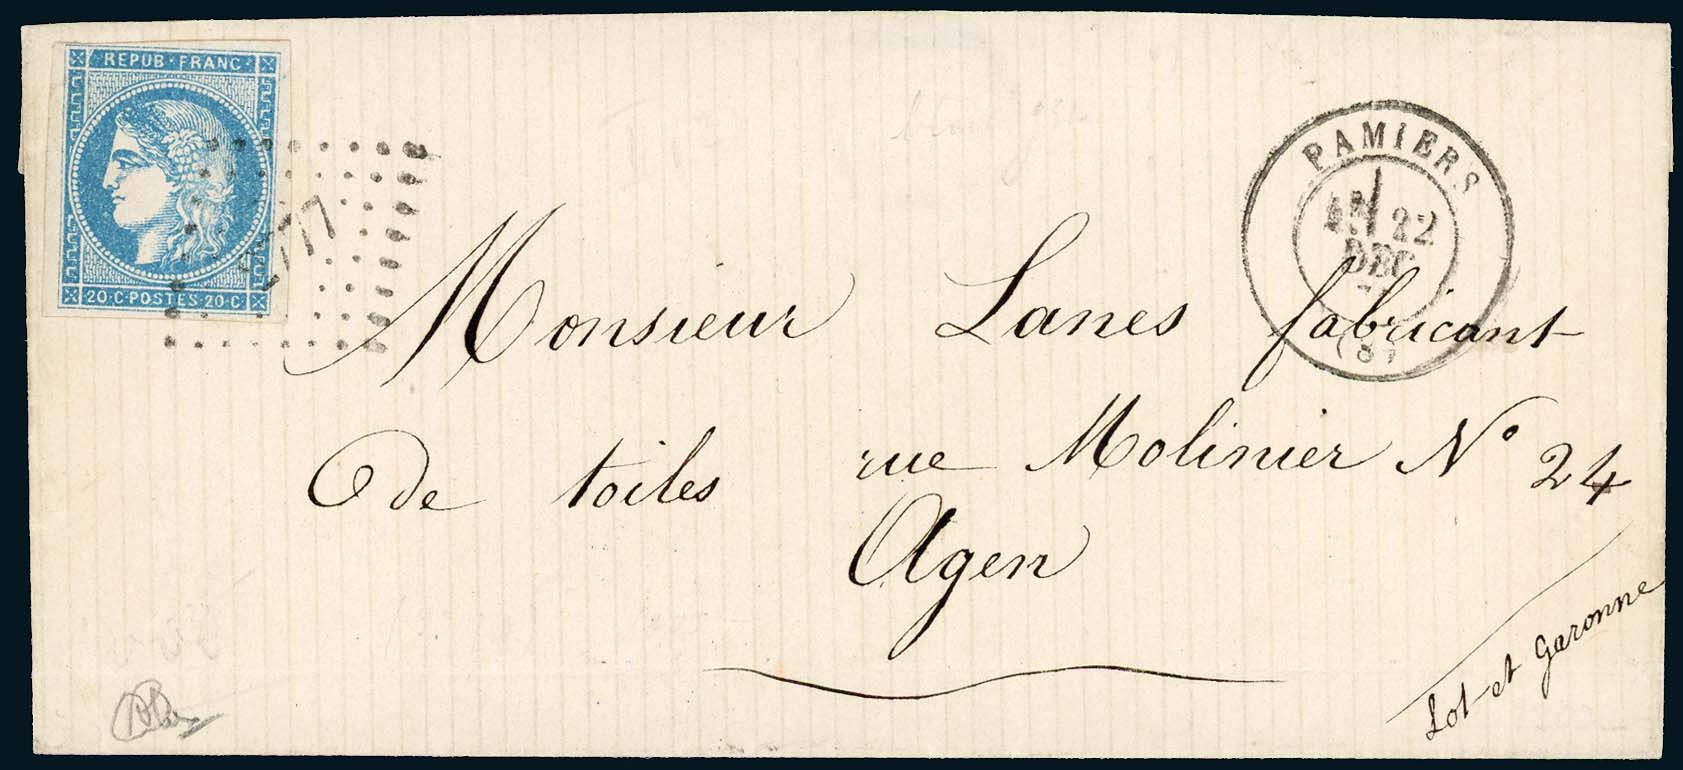 REPUB·FRANC·
20·C·POSTES·20·C
2777
PAMIERS
22
DEC
Monsieur Lanes fabricant
de toiles rue Molinier N° 24
Agen
Lot-et Garonne